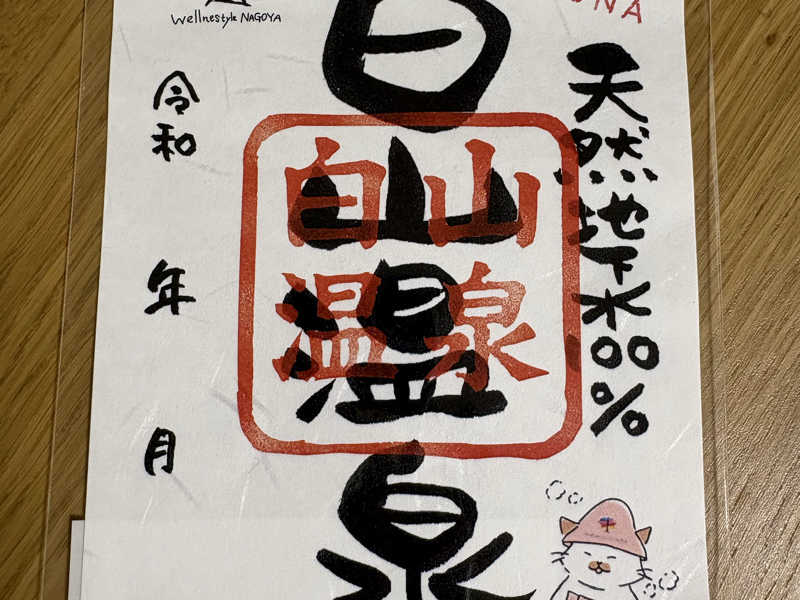 Wellnestyle NAGOYA
UNA
天然地下水100%
白山温泉
白山
温泉
令和 年 月